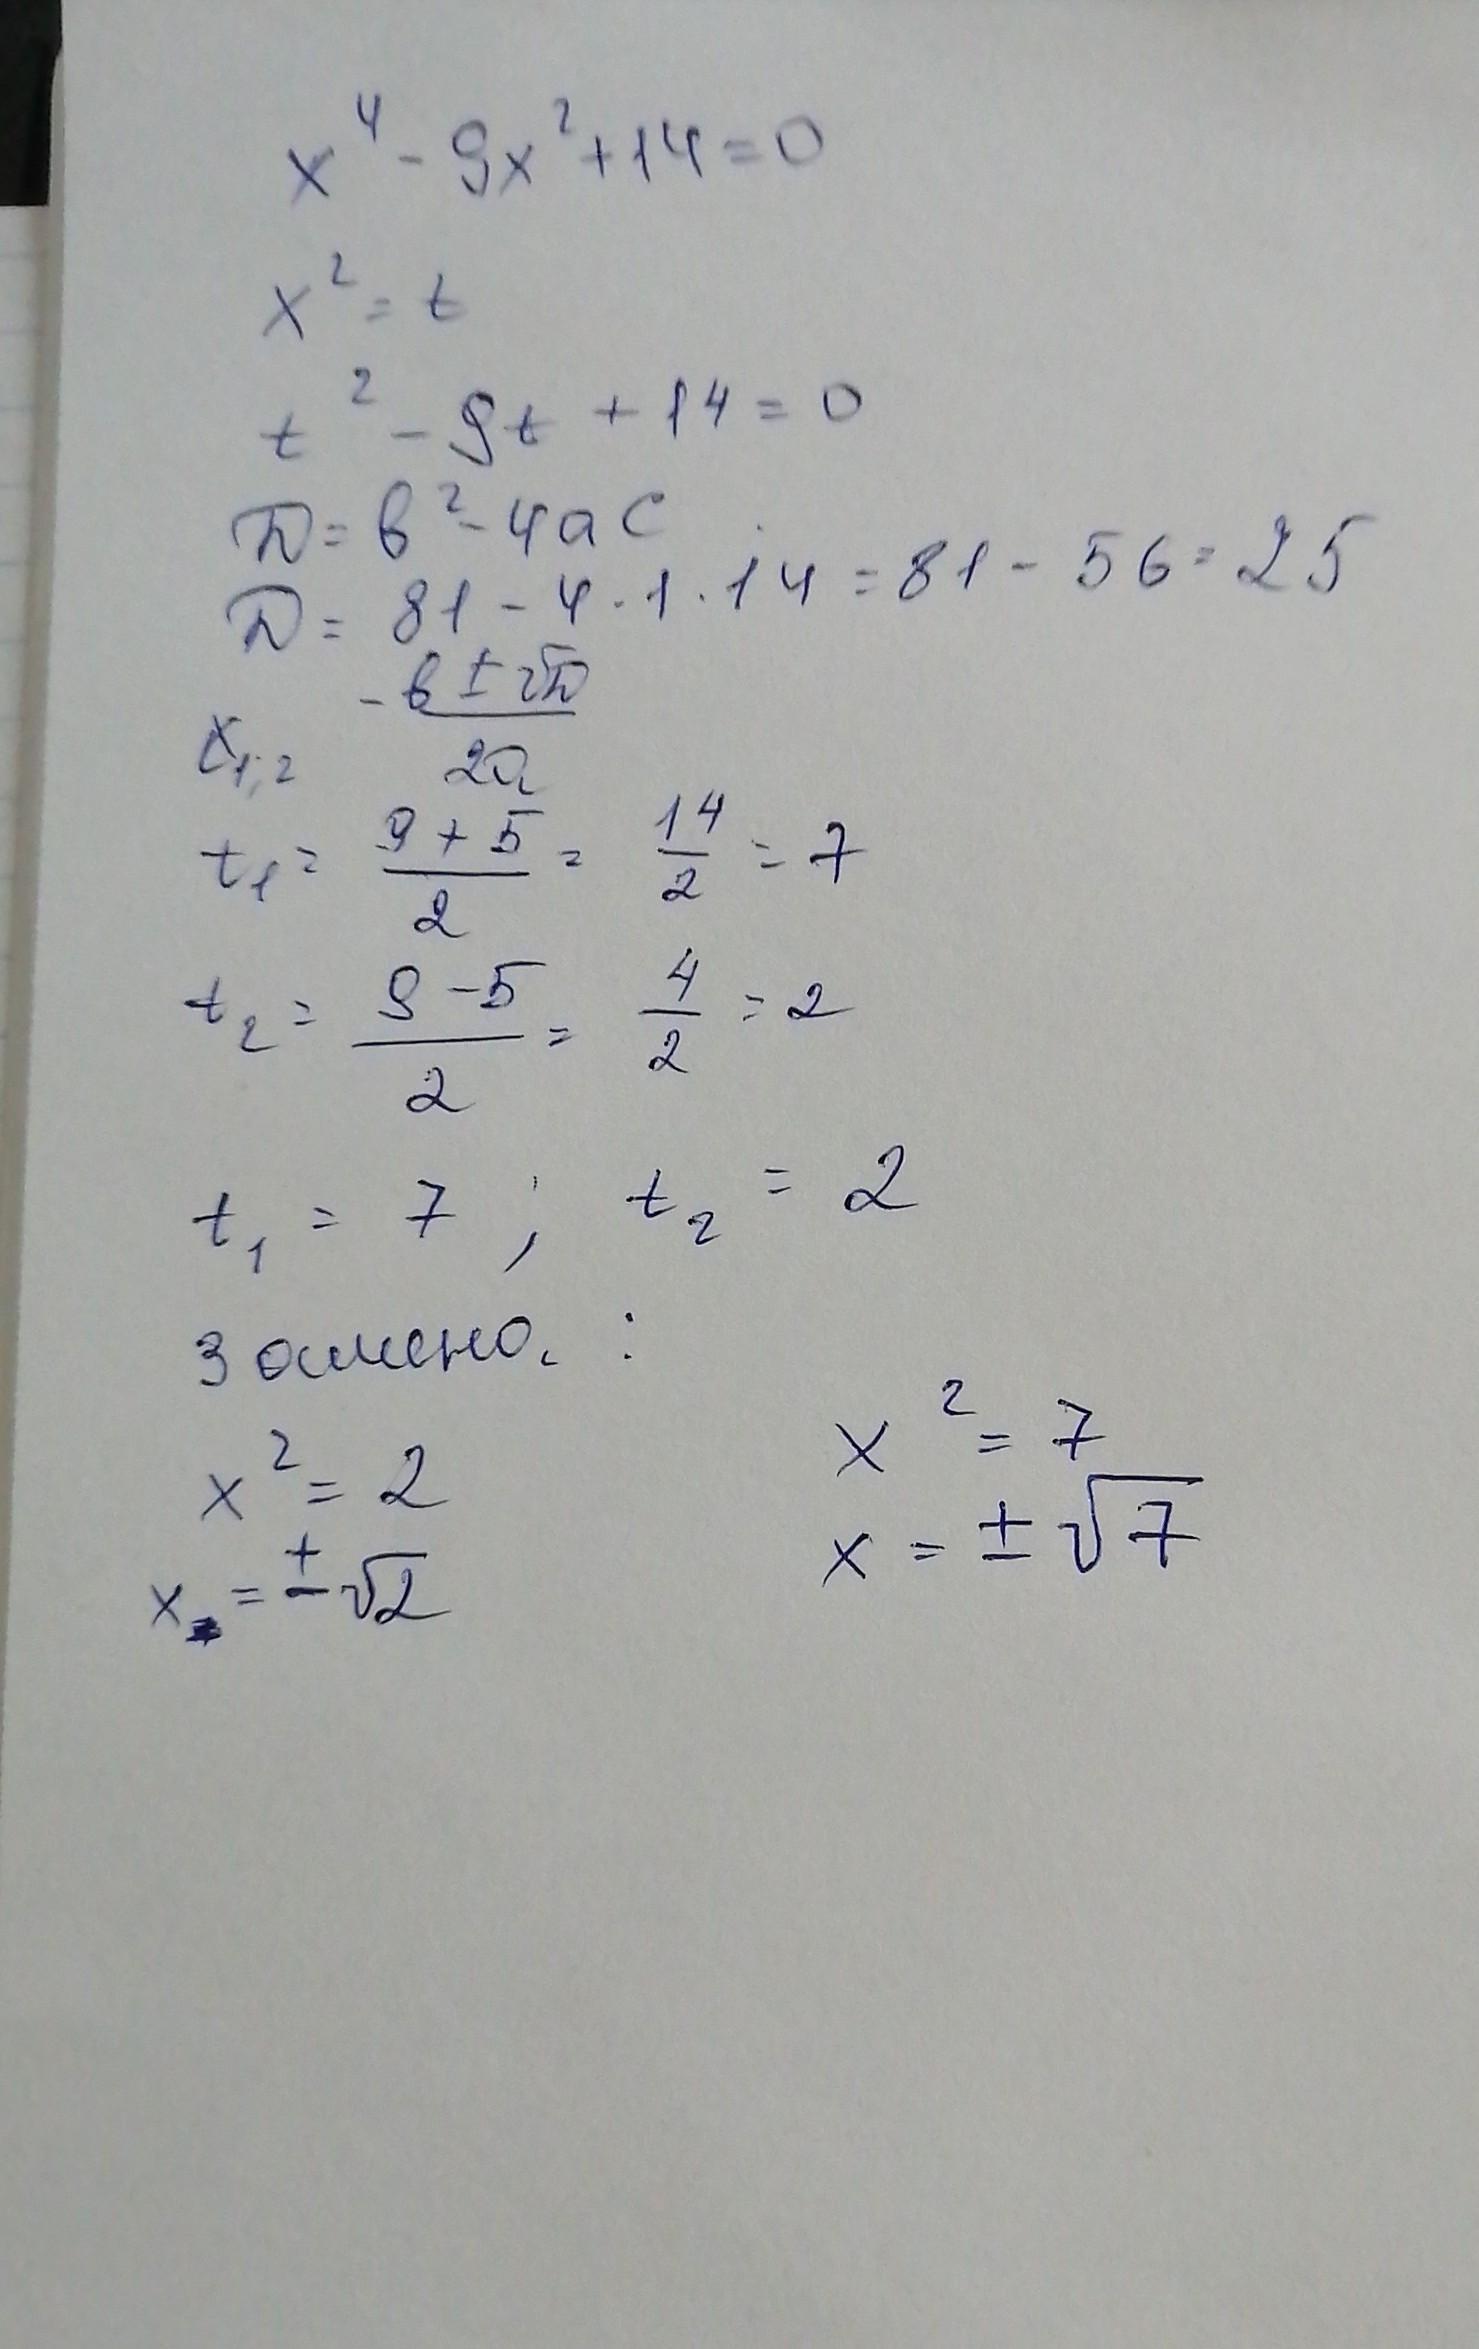 x⁴ - 9x² + 14 = 0
x² = t
t² - 9t + 14 = 0
D = b² - 4ac
D = 81 - 4 · 1 · 14 = 81 - 56 = 25
x₁,₂ -b ± √D / 2a
t₁ = 9 + 5 / 2 = 14 / 2 = 7
t₂ = 9 - 5 / 2 = 4 / 2 = 2
t₁ = 7 ; t₂ = 2
Замена :
x² = 2 x² = 7
x = ± √2 x = ± √7